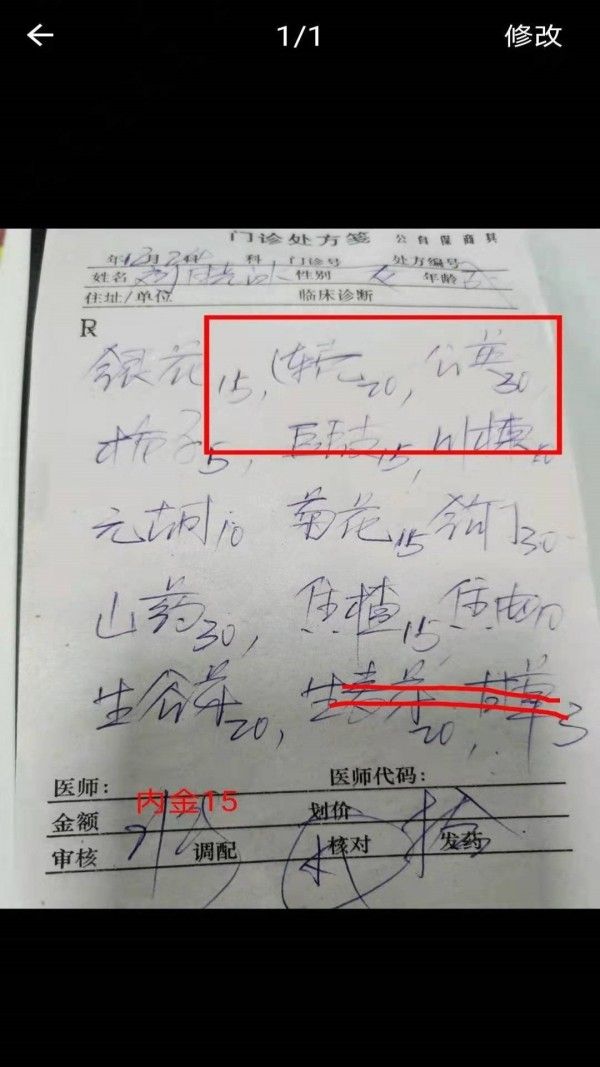 1/1 修改
门诊处方笺 公自保商其
年12月24日 科 门诊号 处方编号
姓名 性别 女 年龄
住址/单位 临床诊断
R
银花15, 连壳20, 公英30
栀子5, 豆豉15, 川楝
元胡10 菊花15 钩丁30
山药30, 焦楂15 焦曲10
生谷芽20, 生麦芽20, 甘草3
医师: 医师代码:
内金15
金额 划价
审核 调配 核对 发药